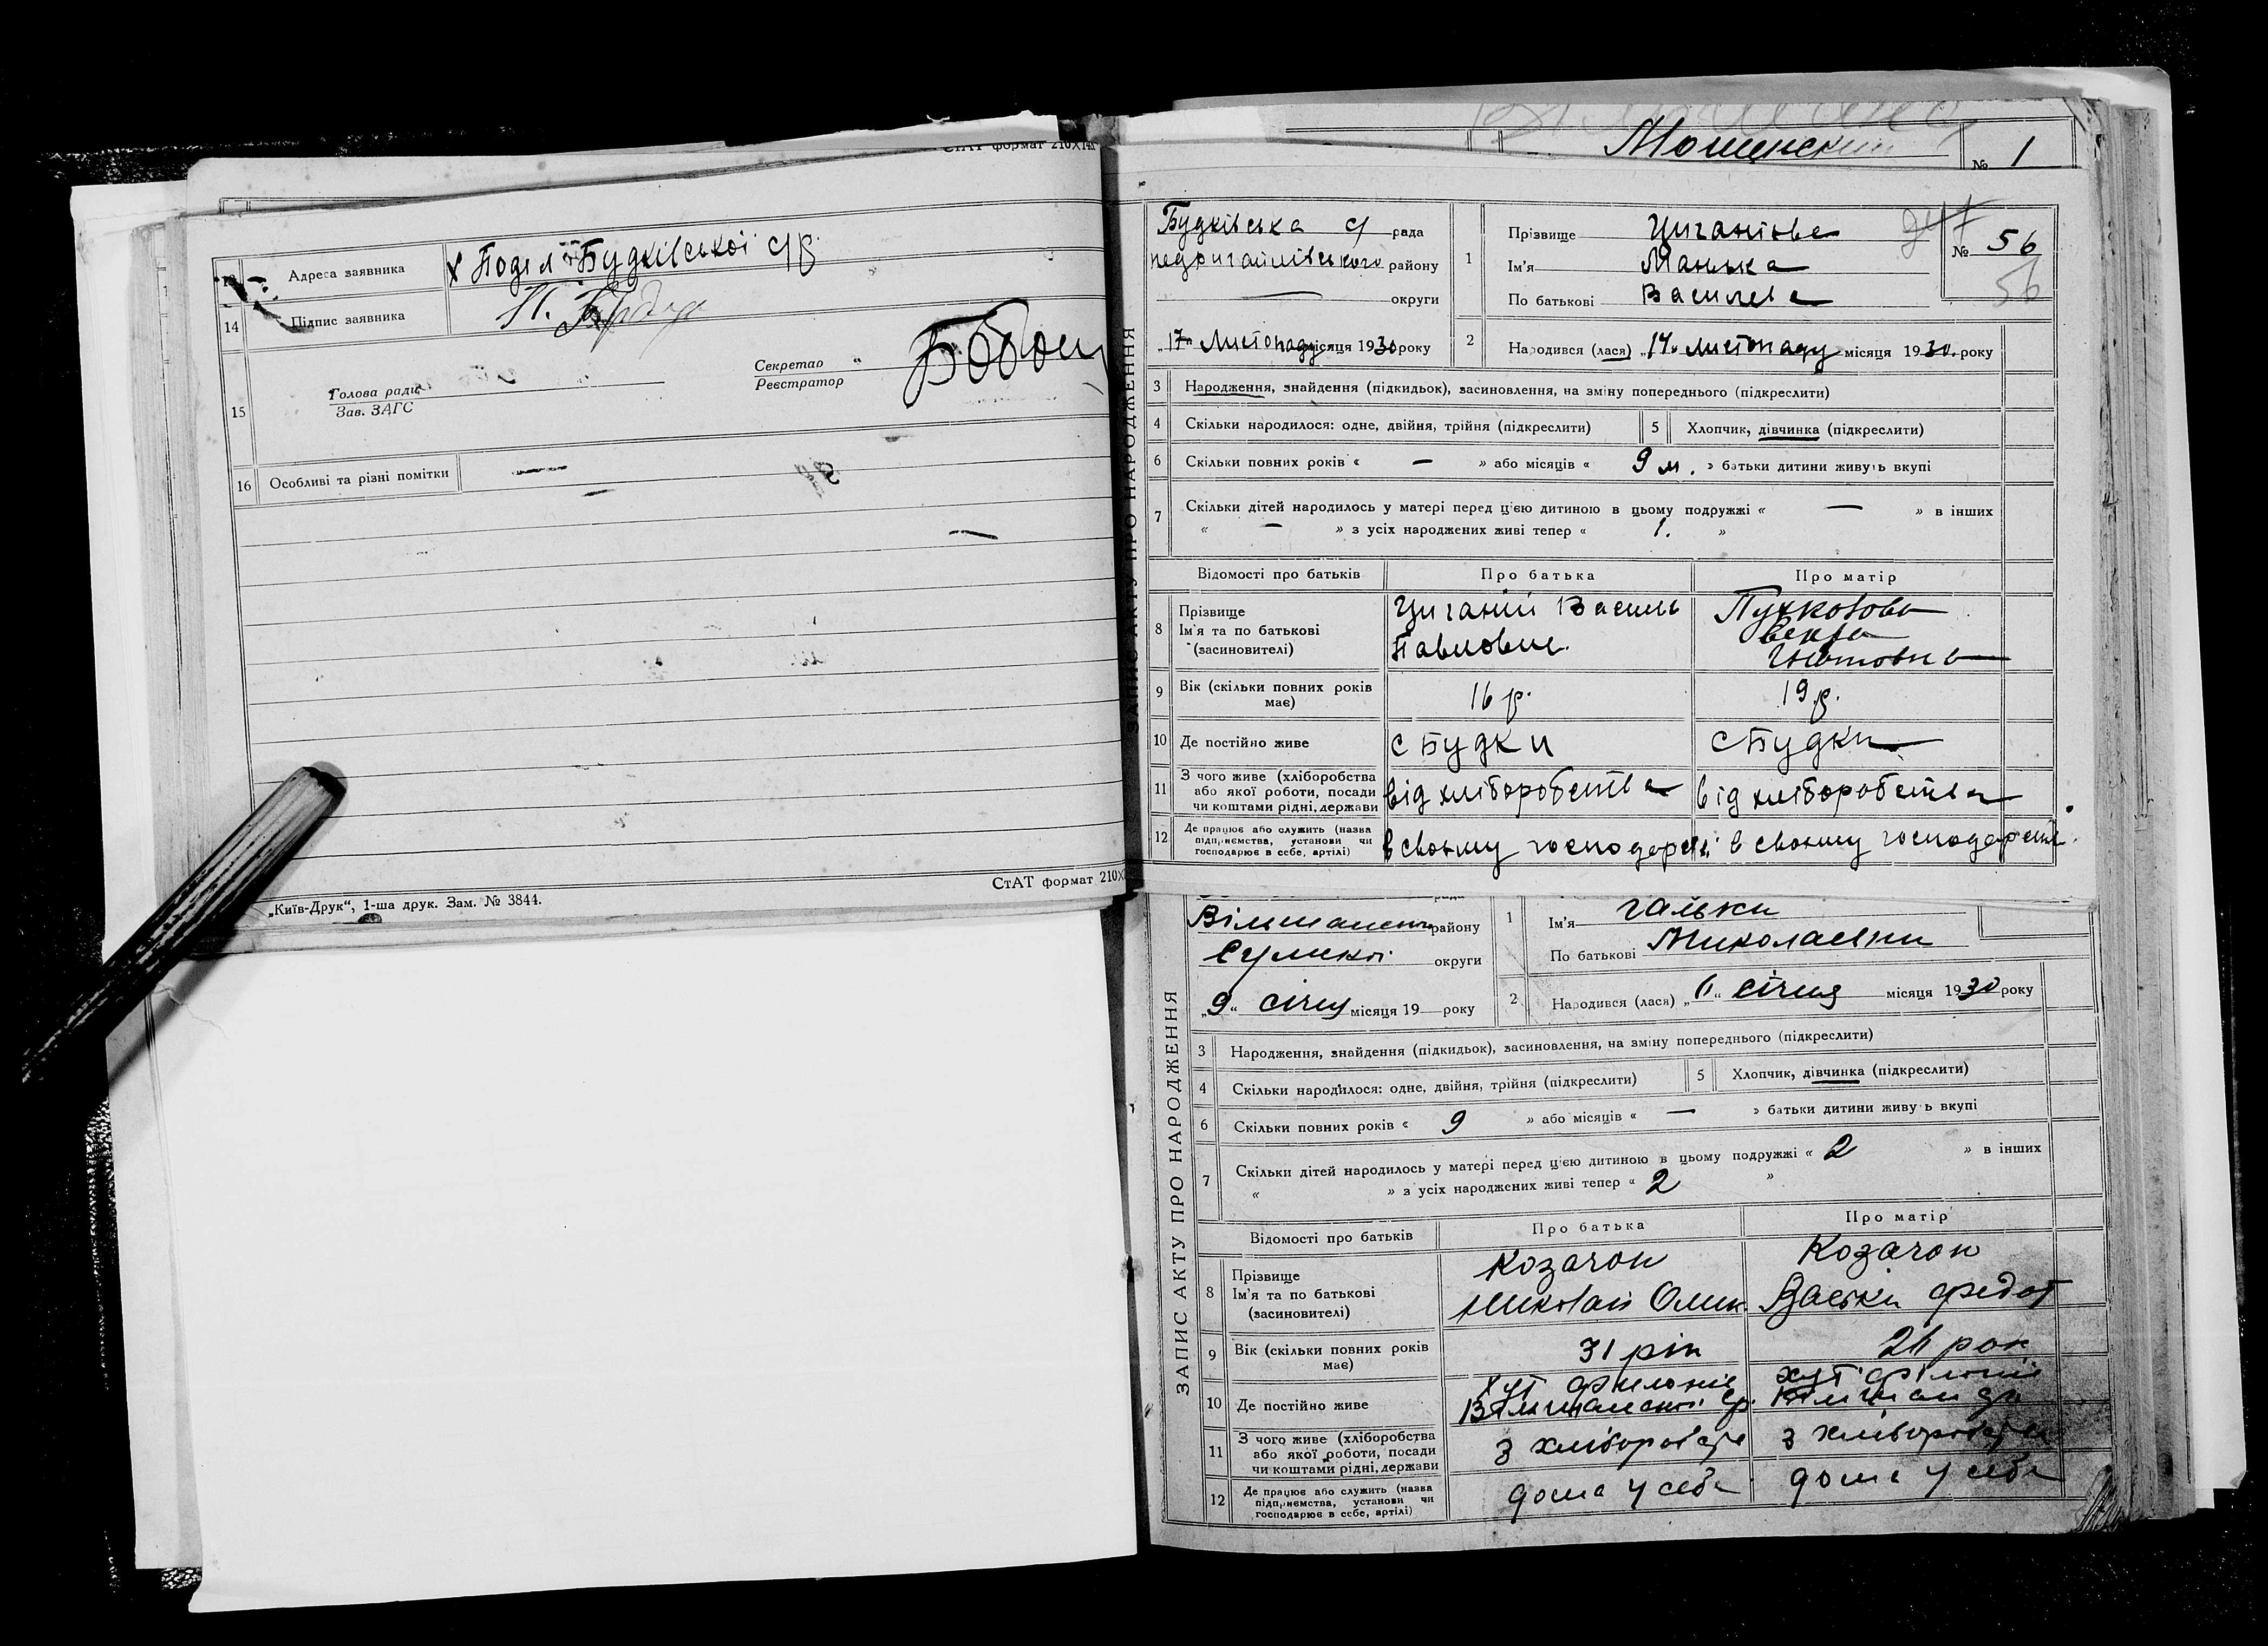 СтАТ формат 210×14
Адреса заявника
х Поділ Будківської с/р.
14 Підпис заявника
15
Голова ради
Зав. ЗАГС
Секретар
Реєстратор
16 Особливі та різні помітки —
„Київ-Друк“, 1-ша друк. Зам. № 3844.
СтАТ формат 210×
№ 1
ЗАПИС АКТУ ПРО НАРОДЖЕННЯ
Будківська с/ рада
недригайлівського району
— округи
„17“ Листопаду місяця 1930 року
1 Прізвище
Ім'я Манька
По батькові Василева
№ 56
56
2 Народився (лася) „14“ листопаду місяця 1930 року
3 Народження, знайдення (підкидьок), засиновлення, на зміну попереднього (підкреслити)
4 Скільки народилося: одне, двійня, трійня (підкреслити)
5 Хлопчик, дівчинка (підкреслити)
6 Скільки повних років « — » або місяців « 9 м. » батьки дитини живуть вкупі
7 Скільки дітей народилось у матері перед цією дитиною в цьому подружжі « — » в інших
« — » з усіх народжених живі тепер « 1. »
Відомості про батьків
Про батька
Про матір
8 Прізвище
Ім'я та по батькові
(засиновителі)
Циганій Василь
Павлович
9 Вік (скільки повних років має)
16 р.
19 р.
10 Де постійно живе
с Будки
с Будки
11 З чого живе (хліборобства
або якої роботи, посади
чи коштами рідні, держави
від хліборобства
від хліборобства
12 Де працює або служить (назва
підприємства, установи чи
господарює в себе, артілі)
в своьму господарстві
в своьму господарстві
ЗАПИС АКТУ ПРО НАРОДЖЕННЯ
району
Сумської округи
„9“ січня місяця 19 року
1 Ім'я Гальки
По батькові Миколаєвни
2 Народився (лася) січня місяця 1930 року
3 Народження, знайдення (підкидьок), засиновлення, на зміну попереднього (підкреслити)
4 Скільки народилося: одне, двійня, трійня (підкреслити)
5 Хлопчик, дівчинка (підкреслити)
6 Скільки повних років « 9 » або місяців « — » батьки дитини живуь вкупі
7 Скільки дітей народилось у матері перед цією дитиною в цьому подружжі « 2 » в інших
« » з усіх народжених живі тепер « 2 »
Відомості про батьків
Про батька
Про матір
8 Прізвище
Ім'я та по батькові
(засиновителі)
Козачок
Николай
Козачок
Федот
9 Вік (скільки повних років має)
31 рік
рок
10 Де постійно живе
хут
хут
11 З чого живе (хліборобства
або якої роботи, посади
чи коштами рідні, держави
з
з
12 Де працює або служить (назва
підприємства, установи чи
господарює в себе, артілі)
дома у себе
дома у себе